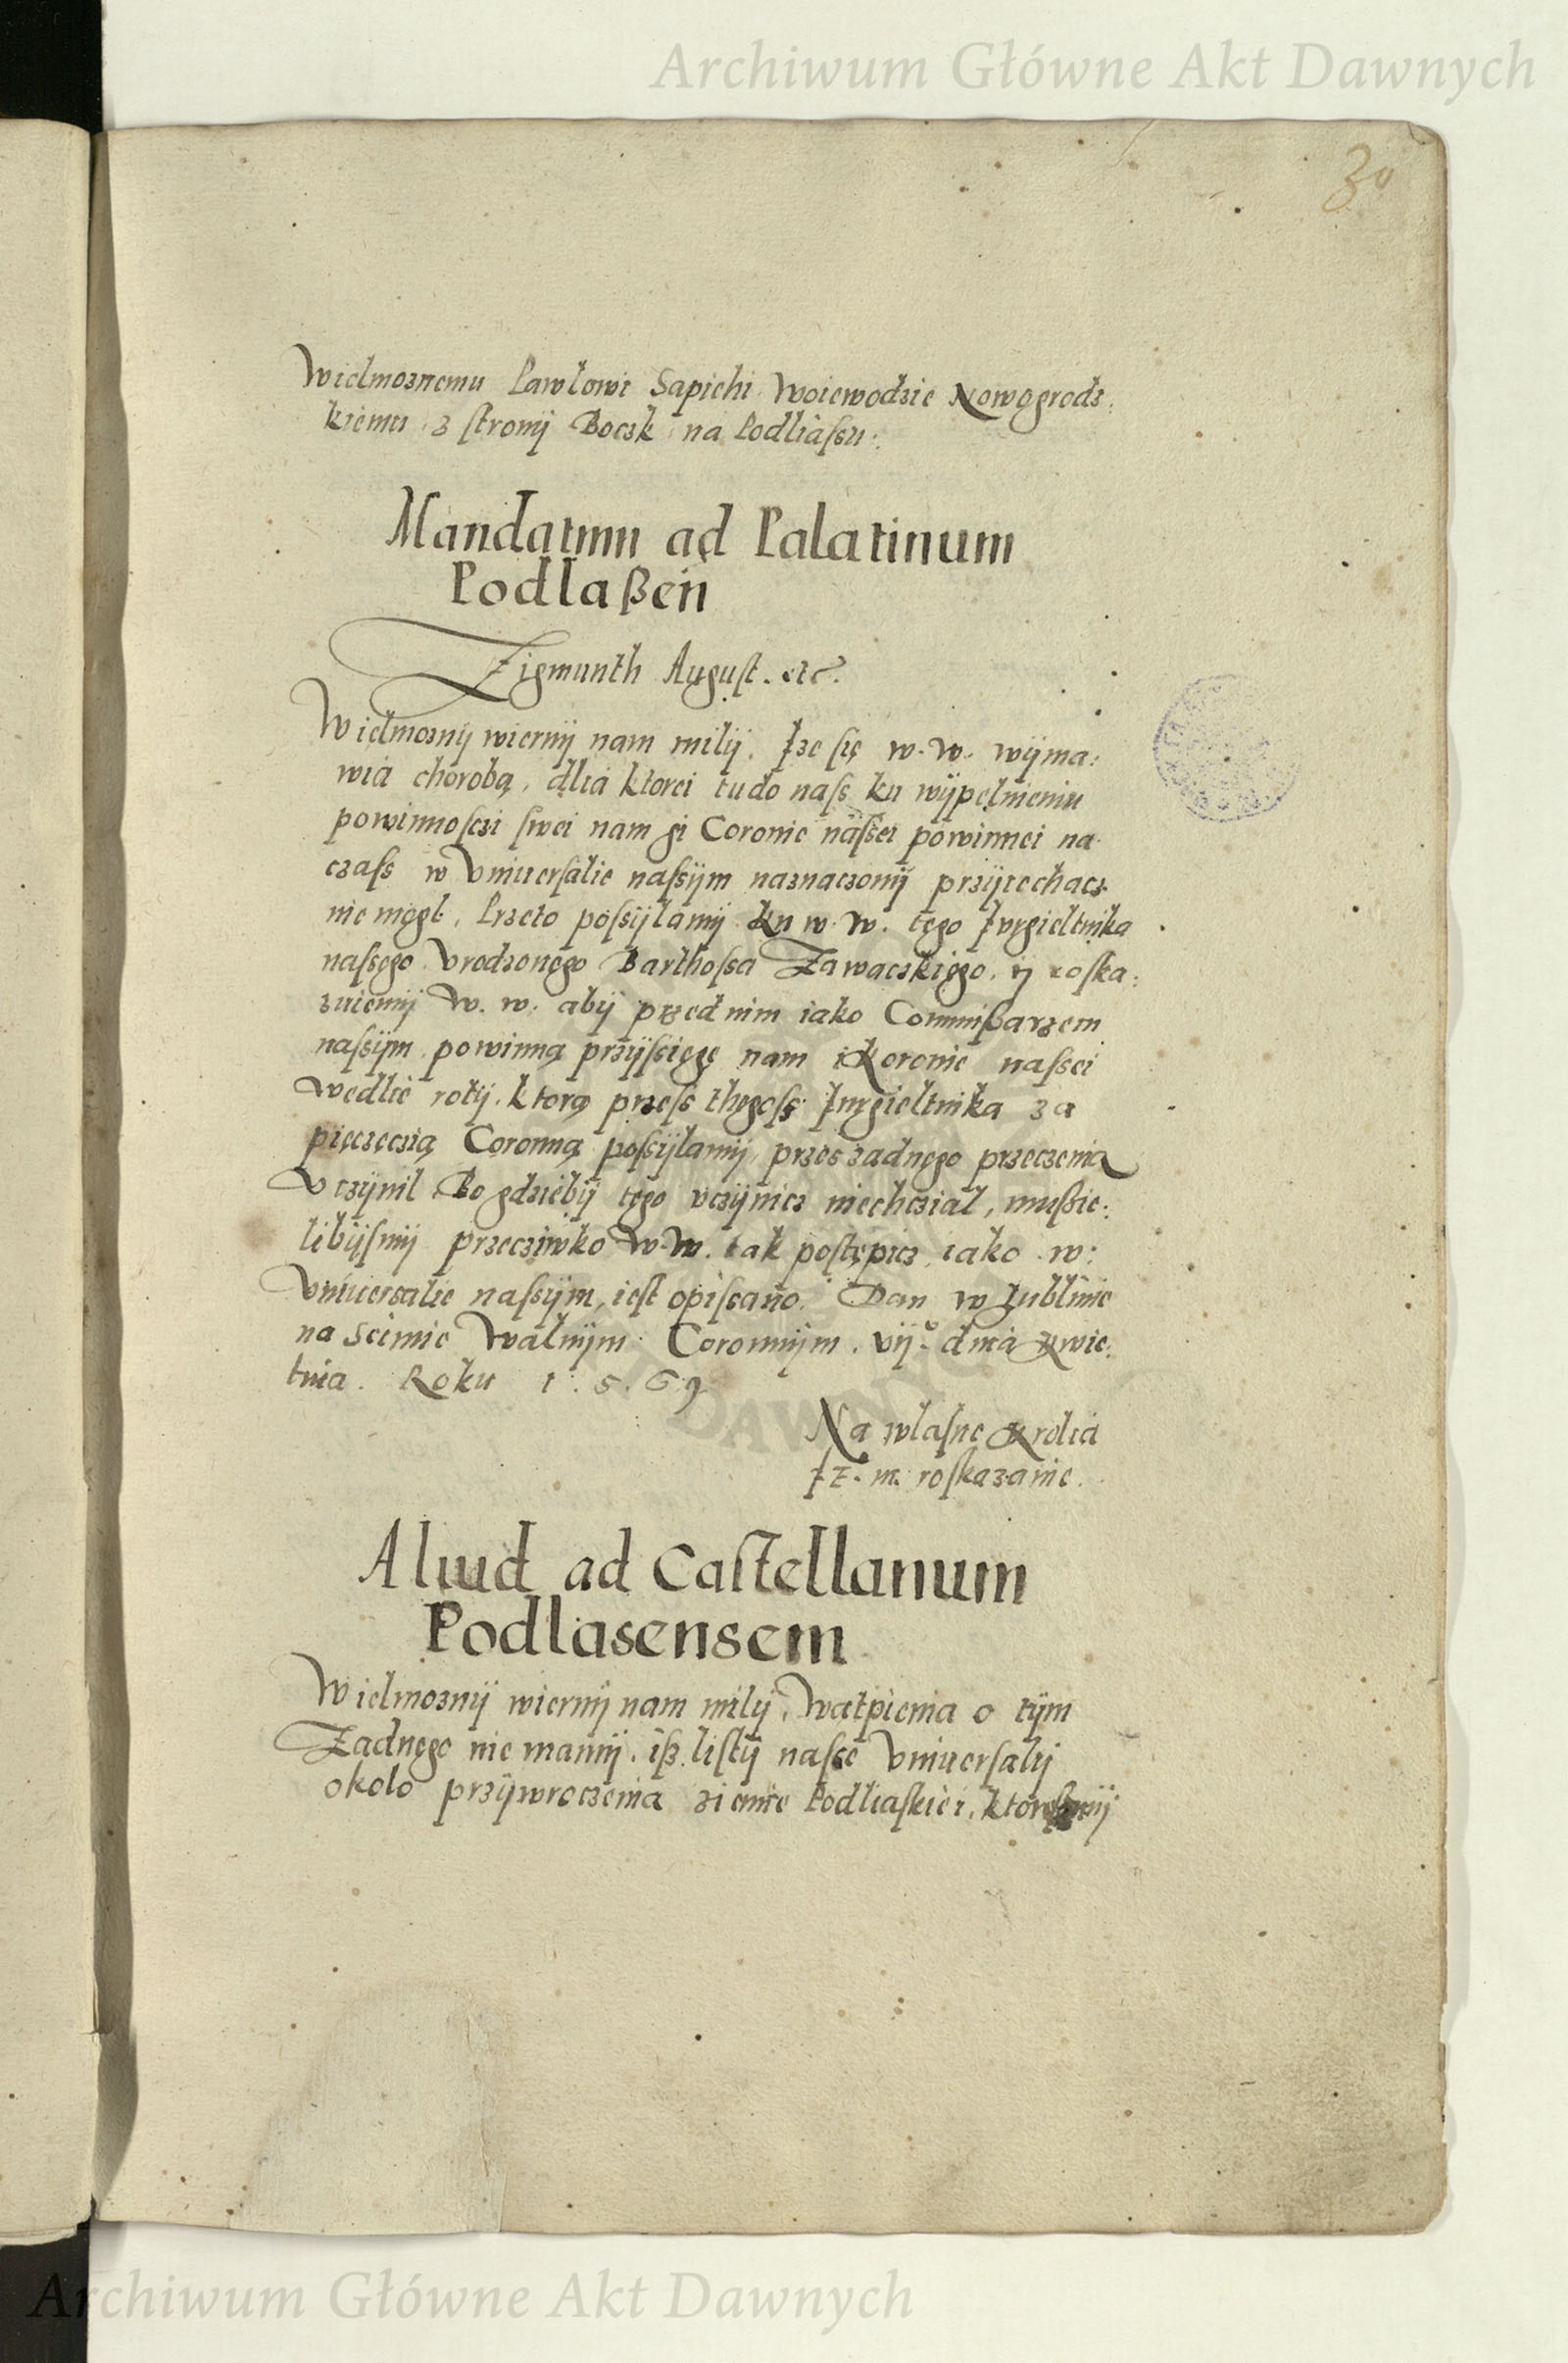 Archiwum Główne Akt Dawnych
30
Wielmoznemu Pawlowi Sapiehi Woiewodzie Nowogrodz:
kiemu z stronÿ Boczk na Podliaſsu:
Mandatum ad Palatinum
Podlaßen̄
Zigmunth Auguſt. etc.
Wielmoznÿ wiernÿ nam milÿ. Jze ſię w. w. wÿma:
wia chorobą, dlia ktorei tu do naſs ku wÿpelnieniu
powinnoſczi ſwei nam ÿ Coronie naſsei powinnei na
czaſs w Vniuerſalie naſsÿm naznaczonÿ przÿiechacz
nie mogł. Przeto poſsÿlamÿ ku w. w. tego Jurgieltnika
naſsego Vrodzonego Barthoſsa Zawaczkiego. ÿ roſka:
zuiemÿ w. w. abÿ przed nim iako Commißarzem
naſsÿm powinną przÿſsięgę nam i Koronie naſsei
wedlie rotÿ. ktorą przeſs thegoſs Jurgieltnika za
pięczęczią Coronną poſsÿlamÿ przes zadnego przeczenia
Vczÿnil Bo gdziebÿ tego vczÿnicz niechczial, mußie:
libÿſmÿ przecziwko w. w. tak poſtępicz, iako w:
Vniuersalie naſsÿm, ieſt opiſsano. Dan w Lublinie
na Seimie Walnÿm Coronnÿm. vij.° dnia Kwie:
tnia. Roku 1.5.6.9
Na wlaſne Krolia
JE. m. roſkazanie.
Aliud ad Caſtellanum
Podlasensem
Wielmoznÿ wiernÿ nam milÿ, Wątpienia o tÿm
Zadnego nie mamÿ. iß liſtÿ naſse Vniuerſalÿ
okolo przÿwroczenia ziemie Podliaſkiei, ktoreſmÿ
Archiwum Główne Akt Dawnych